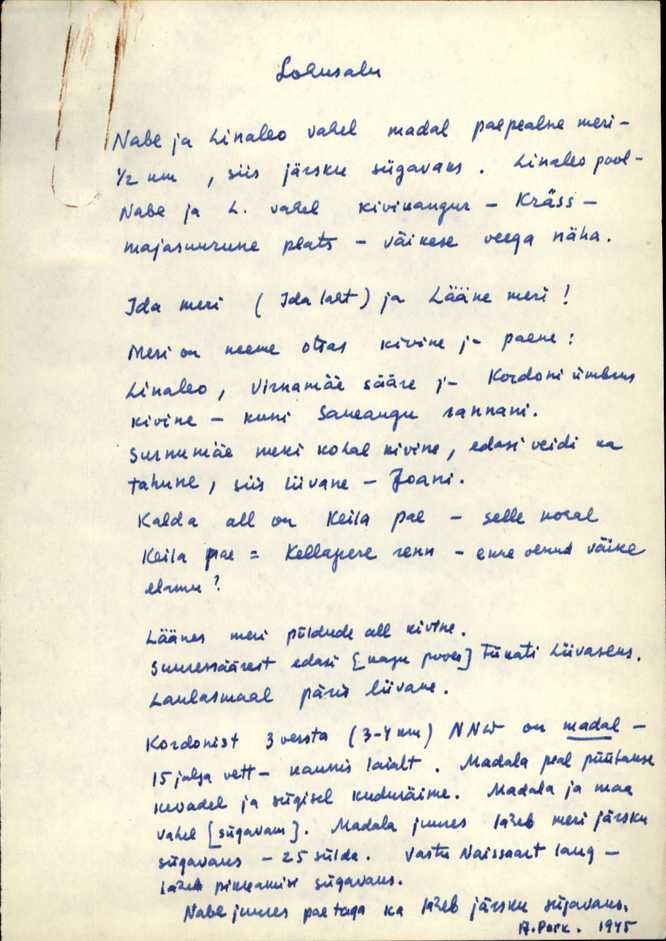 Lohusalu
Nabe ja Linaleo vahel madal paepealne meri –
1/2 km, siis järsku sügavaks. Linaleo pool –
Nabe ja L. vahel kivikangur – Kräss –
majasuurune plats – väikese veega näha.
Ida meri (Ida laht) ja Lääne meri!
Meri on neeme otsas kivine j– paene:
Linaleo, Virnamäe sääre j– Kordoni ümbrus
kivine – kuni Saueaugu rannani.
Surnumäe meki kohal kivine, edasi veidi ka
tahune, siis liivane – Joani.
Kalda all on Keila pae – selle kohal
Keila pae = Kellapere renn – enne olnud väike
elamu?
Läänes meri põldude all kivine.
Suuressäärest edasi [nagu pooes] tükati liivasens.
Laulasmaal päris liivane.
Kordonist 3 versta (3-4 km) NNW on madal –
15 jalga vett – kaunis laialt. Madala peal püütakse
kevadel ja sügisel kuduräime. Madala ja maa
vahel [sügavam]. Madala juures läheb meri järsku
sügavaks – 25 sülda. Vastu Naissaart laug –
läheb pikkamise sügavaks.
Nabe juures pae taga ka läheb järsku sügavaks.
A. Park. 1945